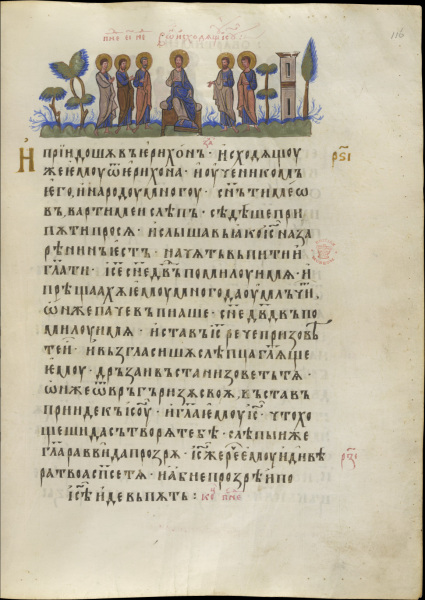 116
И приидошѧ въ ерихонъ · исходѧщоу
же емоу ѿ ерихона · и оученикомъ
его, и народоу многоу · сн҃ъ тимео
въ, вартимеи слѣпъ · сѣдѣше при
пѫти просѧ · и слышавъ ꙗко іс҃ наза
рѣнинъ естъ · начѧтъ въпити и
гл҃ати · іс҃е сн҃е дв҃въ помилоуи мѧ · и
прѣщаахѫ емоу мнози да оумлъчит
ѡнъ же паче въпиаше · сн҃е дв҃двъ по
милоуи мѧ · и ставъ іс҃ рече призовѣ
те и · и възгласишѧ слѣпца гл҃ѧще
емоу · дръзаи въстани зоветъ тѧ ·
ѡнъ же ѿвръгъ ризѫ своѫ, въставъ
прииде къ іс҃оу · и гл҃а емоу іс҃ · что хо
щеши да сътворѧ тебѣ · слѣпыи же
гл҃а раввꙋни да прозрѧ · іс҃ же рече емоу иди вѣ
ра твоа сп҃се тѧ · и абие прозрѣ и по
іс҃ѣ иде въ пѫть :
рѕ҃і
рз҃і